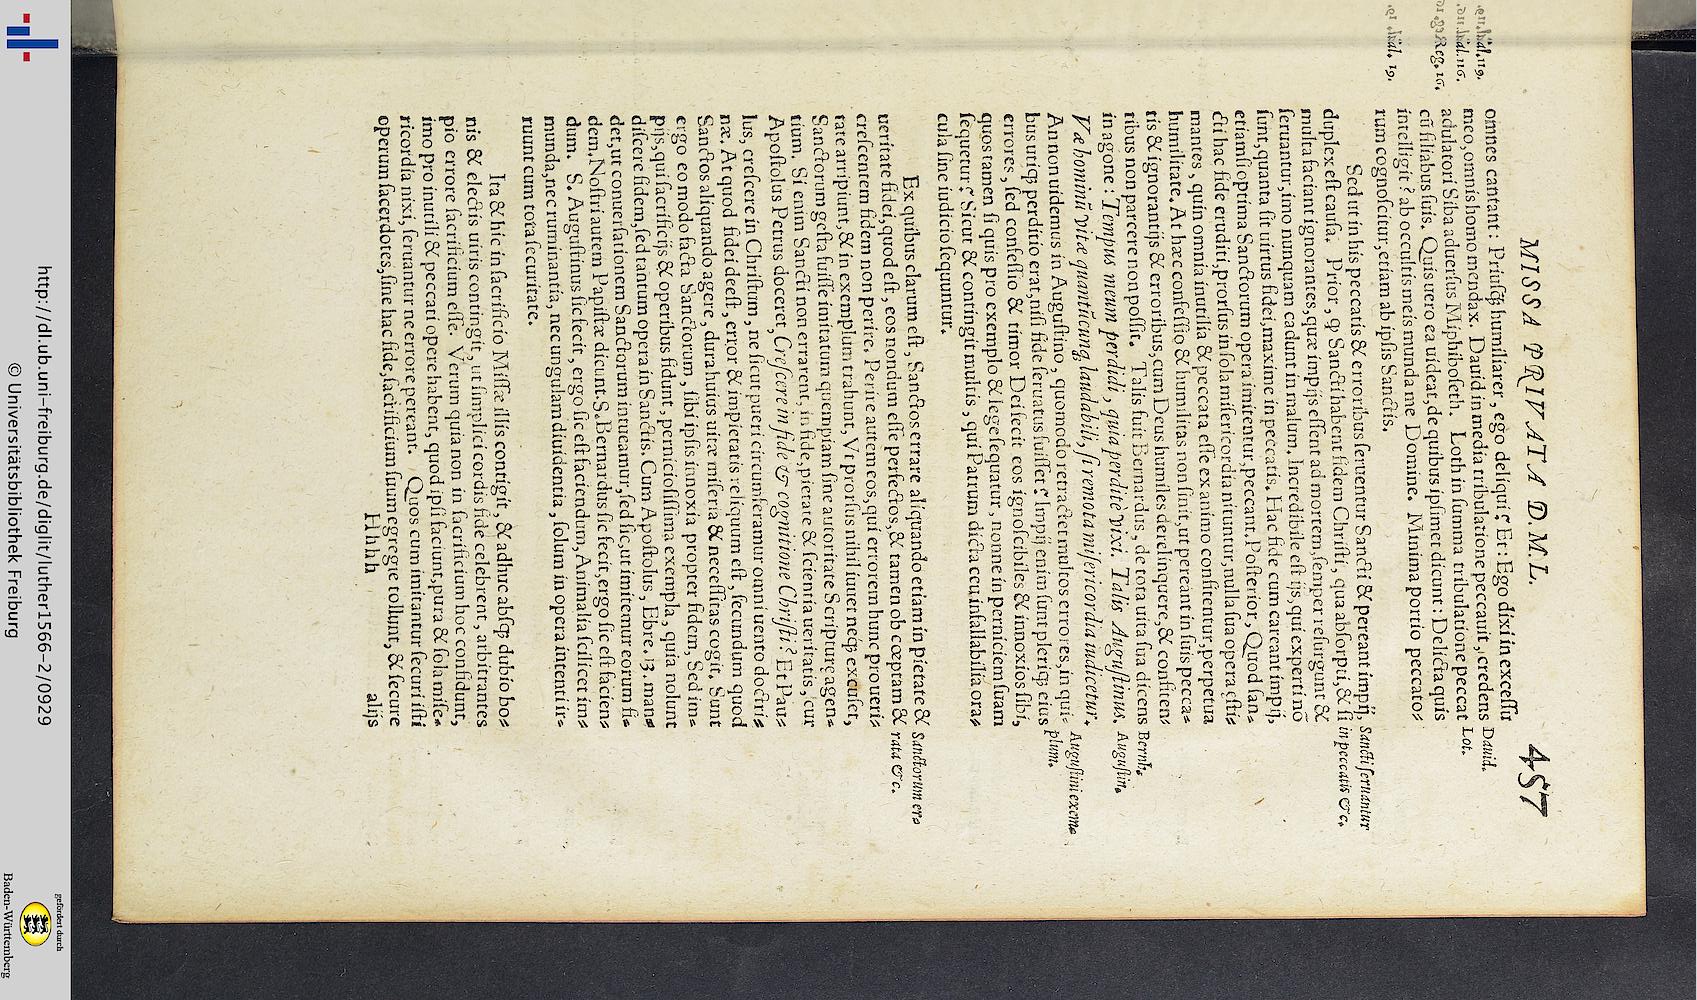 MISSA PRIVATA D. M. L. 457
omnes cantant: Priusꝗ̃ humiliarer, ego deliqui? Et: Ego dixi in excessu
meo, omnis homo mendax. Dauid in media tribulatione peccauit, credens
adulatori Siba aduersus Miphiboseth. Loth in summa tribulatione peccat
cũ filiabus suis. Quis uero ea uideat, de quibus ipsimet dicunt: Delicta quis
intelligit? ab occultis meis munda me Domine. Minima portio peccato⸗
rum cognoscitur, etiam ab ipsis Sanctis.
Sed ut in his peccatis & erroribus seruentur Sancti & pereant impij,
duplex est causa. Prior, ꝙ Sancti habent fidem Christi, qua absorpti, & si
multa faciant ignorantes, quæ impijs essent ad mortem, semper resurgunt &
seruantur, imo nunquam cadunt in malum. Incredibile est ijs, qui experti nõ
sunt, quanta sit uirtus fidei, maxime in peccatis. Hac fide cum careant impij,
etiamsi optima Sanctorum opera imitentur, peccant. Posterior, Quod san⸗
cti hac fide eruditi, prorsus in sola misericordia nituntur, nulla sua opera ęsti⸗
mantes, quin omnia inutilia & peccata esse ex animo confitentur, perpetua
humilitate. At hæc confessio & humilitas non sinit, ut pereant in suis pecca⸗
tis & ignorantijs & erroribus, cum Deus humiles derelinquere, & confiten⸗
tibus non parcere non possit. Talis fuit Bernardus, de tota uita sua dicens
in agone: Tempus meum perdidi, quia perditè vixi. Talis Augustinus,
Væ hominũ vitæ quantũcunq; laudabili, si remota misericordia iudicetur.
An non uidemus in Augustino, quomodo retractet multos errores, in qui⸗
bus utiq; perditio erat, nisi fide seruatus fuisset? Impij enim sunt pleriq; eius
errores, sed confessio & timor Dei fecit eos ignoscibiles & innoxios sibi,
quos tamen si quis pro exemplo & lege sequatur, nonne in perniciem suam
sequetur? Sicut & contingit multis, qui Patrum dicta ceu infallabilia ora⸗
cula sine iudicio sequuntur.
Ex quibus clarum est, Sanctos errare aliquando etiam in pietate &
ueritate fidei, quod est, eos nondum esse perfectos, & tamen ob cœptam &
crescentem fidem non perire. Perire autem eos, qui errorem hunc pro ueri⸗
tate arripiunt, & in exemplum trahunt, Vt prorsus nihil iuuet neq; excuset,
Sanctorum gesta fuisse imitatum quempiam sine autoritate Scripturę agen⸗
tium. Si enim Sancti non errarent, in fide, pietate & scientia ueritatis, cur
Apostolus Petrus doceret, Crescere in fide & cognitione Christi? Et Pau⸗
lus, crescere in Christum, ne sicut pueri circumferamur omni uento doctri⸗
næ. At quod fidei deest, error & impietatis reliquum est, secundum quod
Sanctos aliquando agere, dura huius uitæ miseria & necessitas cogit. Sunt
ergo eo modo facta Sanctorum, sibi ipsis innoxia propter fidem, Sed im⸗
pijs, qui sacrificijs & operibus fidunt, perniciosissima exempla, quia nolunt
discere fidem, sed tantum opera in Sanctis. Cum Apostolus, Ebre. 13. man⸗
det, ut conuersationem Sanctorum intueamur, sed sic, ut imitemur eorum fi⸗
dem. Nostri autem Papistæ dicunt. S. Bernardus sic fecit, ergo sic est facien⸗
dum. S. Augustinus sic fecit, ergo sic est faciendum, Animalia scilicet im⸗
munda, nec ruminantia, nec ungulam diuidentia, solum in opera intenti ir⸗
ruunt cum tota securitate.
Ita & hic in sacrificio Missæ illis contigit, & adhuc absq; dubio bo⸗
nis & electis uiris contingit, ut simplici cordis fide celebrent, arbitrantes
pio errore sacrificium esse. Verum quia non in sacrificium hoc confidunt,
imo pro inutili & peccati opere habent, quod ipsi faciunt, pura & sola mise⸗
ricordia nixi, seruantur ne errore pereant. Quos cum imitantur securi isti
operum sacerdotes, sine hac fide, sacrificium suum egregie tollunt, & secure
Hhhh alijs
Dauid.
Lot.
Sancti seruantur
in peccatis &c.
Bernh.
Augustin.
Augustini exem⸗
plum.
Sanctorum er⸗
rata &c.
http://dl.ub.uni-freiburg.de/diglit/luther1566-2/0929
© Universitätsbibliothek Freiburg
gefördert durch
Baden-Württemberg